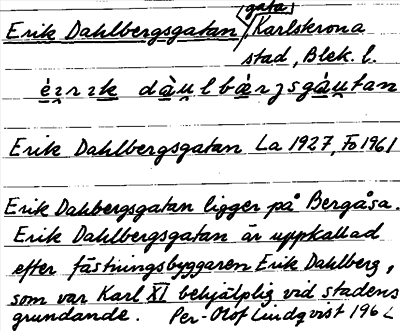 gata,
Erik Dahlbergsgatan / Karlskrona
stad, Blek. l.
Erik Dahlbergsgatan La 1927, Fo 1961
Erik Dahbergsgatan ligger på Bergåsa.
Erik Dahlbergsgatan är uppkallad
efter fästningsbyggaren Erik Dahlberg,
som var Karl XI behjälplig vid stadens
grundande. Per-Olof Lindqvist 196